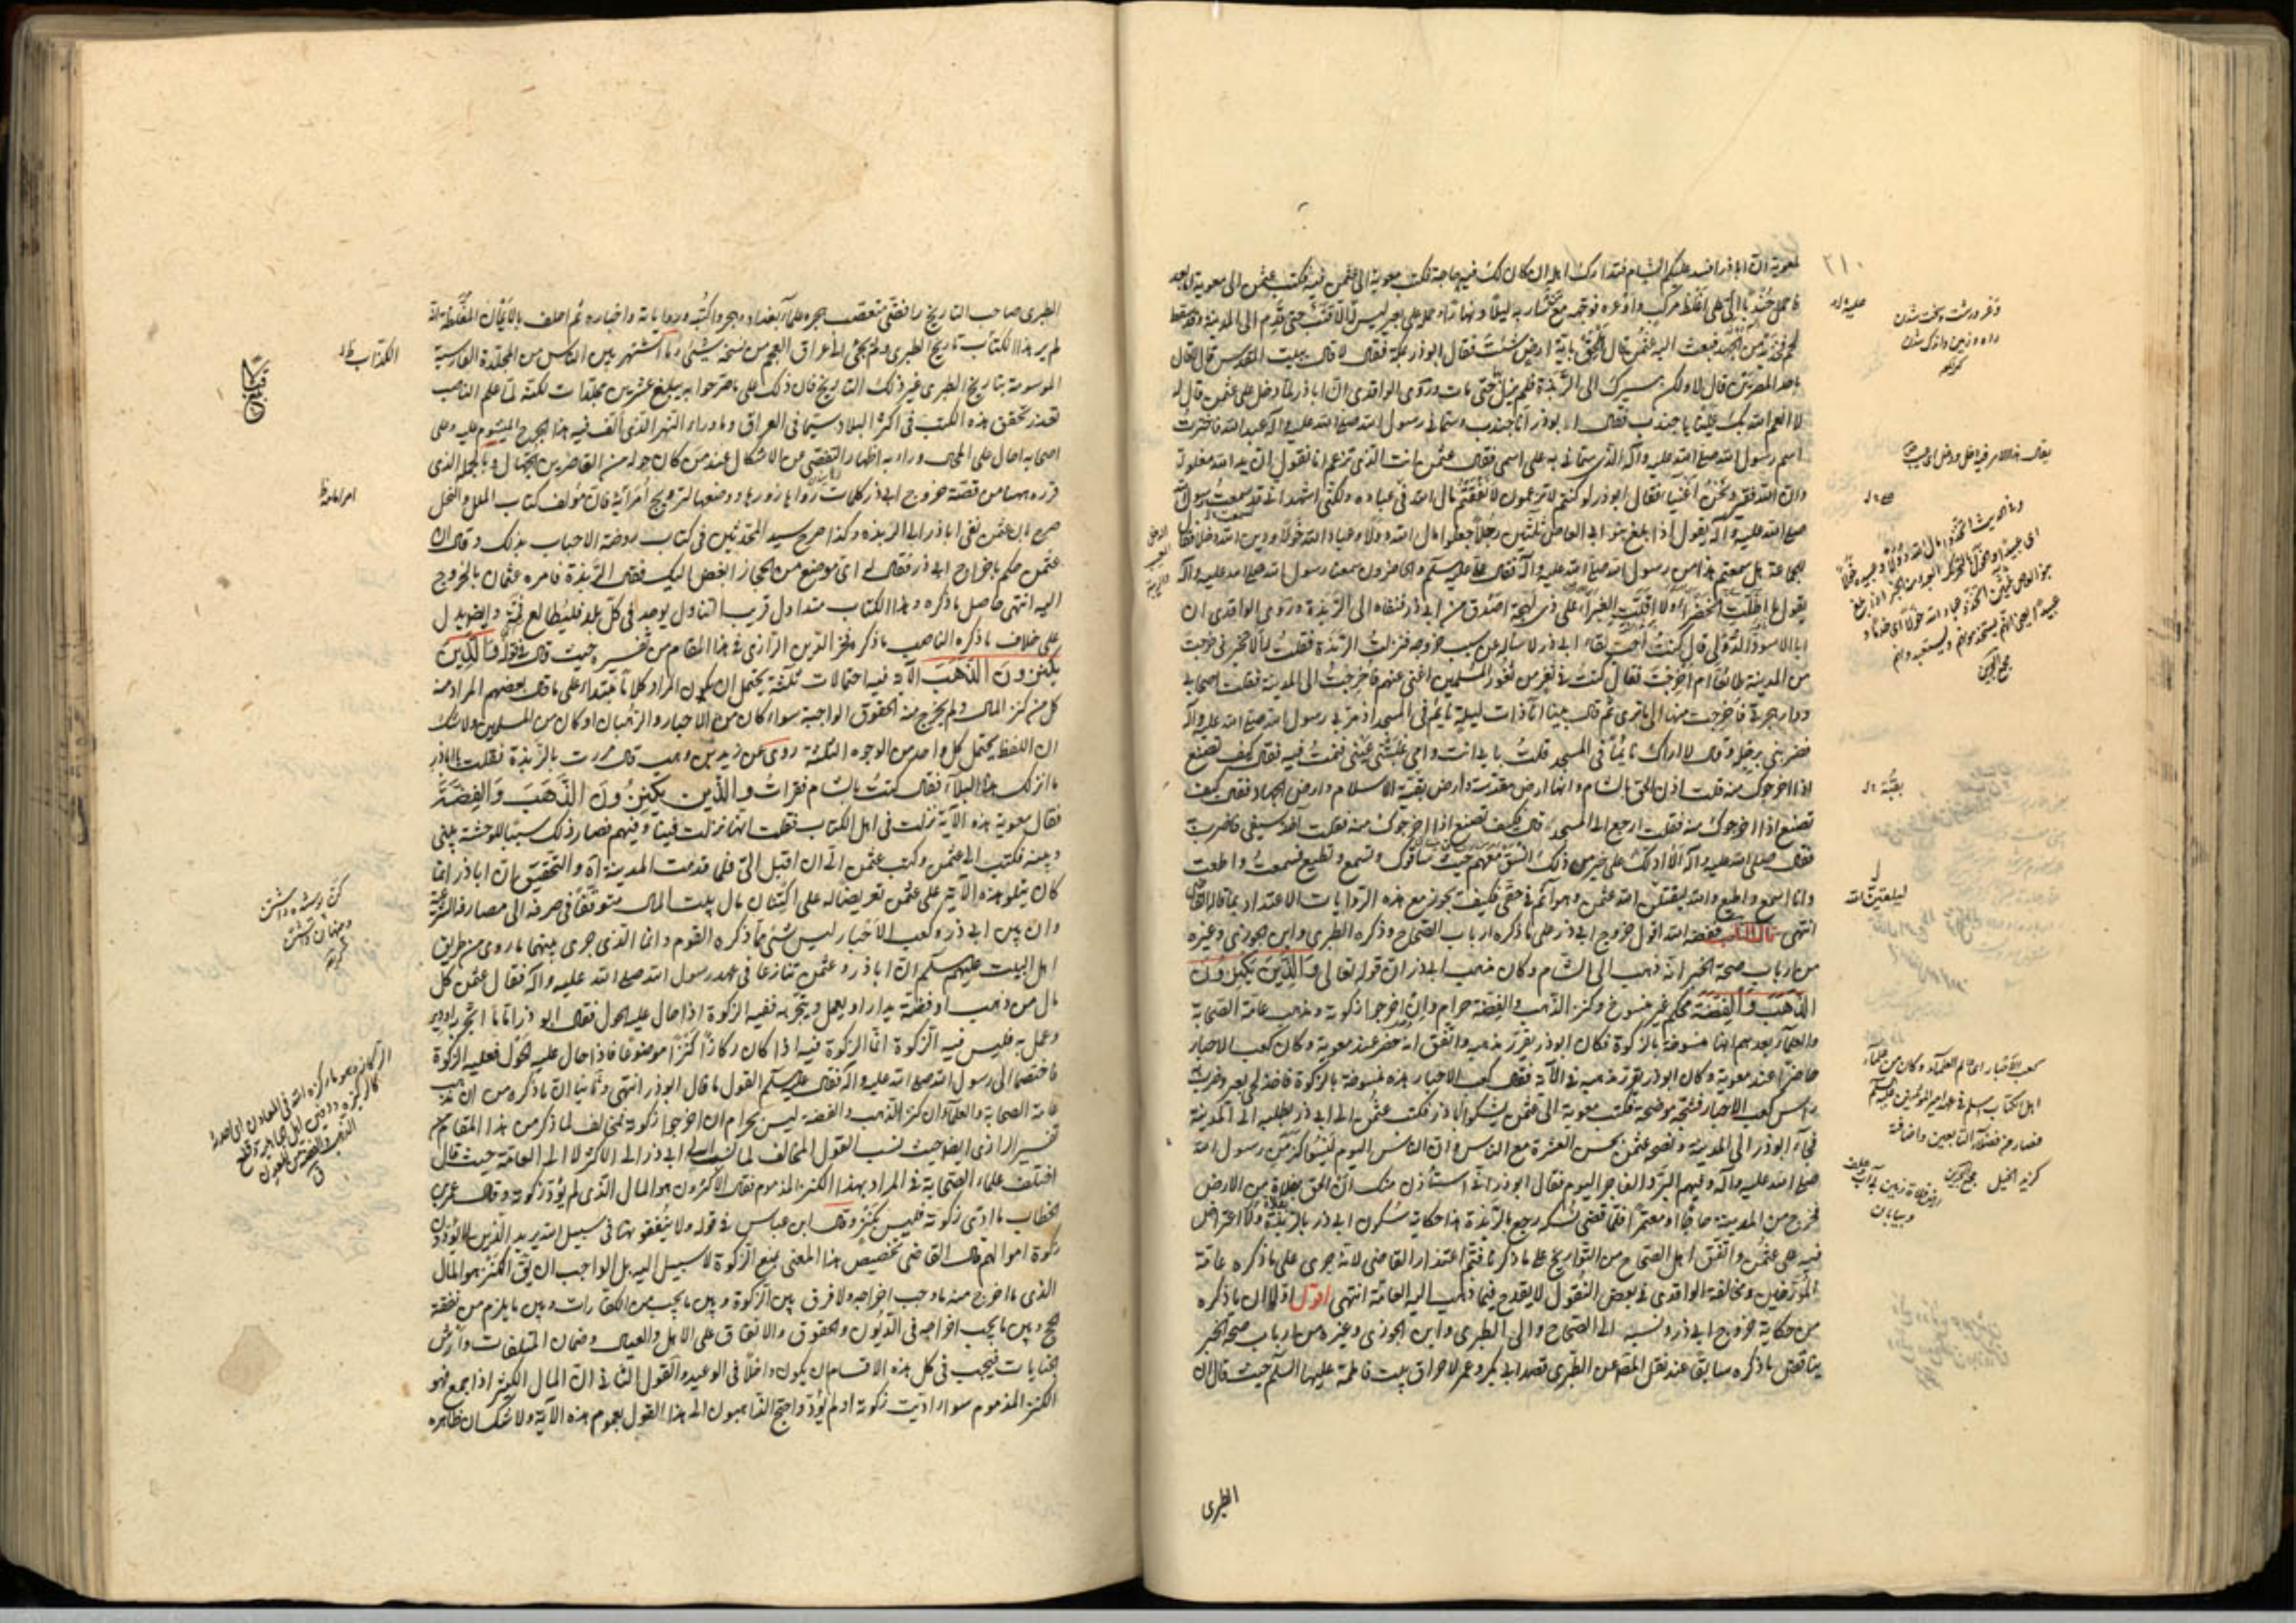 لمعوية ان اباذر افسد عليكم الشام فتدارك اهله ان كان لك فيه حاجة فكتب معوية الى عثمن فيه فكتب عثمن الى معوية اما بعد
فاحمل جندبا الى على اغلظ مركب واوعره فوجه مع من سار به ليلا ونهارا وحمله على بعير ليس عليه الا قتب حتى قدم الى المدينة وقد سقط
لحم فخذيه من الجهد فبعث اليه عثمن قال الحق باية ارض شئت فقال ابوذر بمكة فقال لا قال ببيت المقدس قال لا قال
باحد المصرين قال لا ولكن مسيرك الى الربذة فلم يزل حتى مات وروى الواقدى ان اباذر لما دخل على عثمن قال له
لا انعم الله بك عينا يا جنيدب فقال ابوذر انا جندب وسمانى رسول الله صلى الله عليه وآله عبد الله فاخترت
اسم رسول الله صلى الله عليه وآله الذى سمانى به على اسمى فقال عثمن انت الذى تزعم انا نقول ان يد الله مغلولة
وان الله فقير ونحن اغنياء فقال ابوذر لو كنتم لا تزعمون لانفقتم مال الله فى عباده ولكنى اشهد انى قد سمعت رسول الله
صلى الله عليه وآله يقول اذا بلغ بنو ابى العاص ثلثين رجلا جعلوا مال الله دولا وعباد الله خولا ودين الله دخلا فقال
للجماعة هل سمعتم هذا من رسول الله صلى الله عليه وآله فقال على عليه السلم والحاضرون سمعنا رسول الله صلى الله عليه وآله
يقول ما اظلت الخضراء ولا اقلت الغبراء على ذى لهجة اصدق من ابى ذر فنفاه الى الربذة وروى الواقدى ان
ابا الاسود الدؤلى قال كنت احب لقاء ابى ذر لاسأله عن سبب خروجه فنزلت الربذة فقلت له الا تخبرنى خرجت
من المدينة طائعا ام اخرجت فقال كنت فى ثغر من ثغور المسلمين اغنى عنهم فاخرجت الى المدينة فقلت اصحابى
ودار هجرتى فاخرجت منها الى ما ترى ثم قال بينا انا ذات ليلة نايم فى المسجد اذ مر بى رسول الله صلى الله عليه وآله
فضربنى برجله وقال لا اراك نايما فى المسجد قلت بابى انت وامى غلبتنى عينى فنمت فيه فقال كيف تصنع
اذا اخرجوك منه قلت اذن الحق بالشام وانها ارض مقدسة وارض بقية الاسلام وارض الجهاد فقال كيف
تصنع اذا اخرجوك منه فقلت ارجع الى المسجد قال كيف تصنع اذا اخرجوك منه فقلت اخذ سيفى فاضرب به
فقال صلى الله عليه وآله الا ادلك على خير من ذلك انسق معهم حيث ساقوك وتسمع وتطيع فسمعت واطعت
وانا اسمع واطيع والله ليلقين الله عثمن وهو آثم فى حقى فكيف يجوز مع هذه الروايات الاعتذار بما قاله القاضى
انتهى قال الناصب خفضه الله اقول خروج ابى ذر على ما ذكره ارباب الصحاح وذكره الطبرى وابن جوزى وغيره
من ارباب صحة الخبر انه ذهب الى الشام وكان مذهب ابى ذر ان قوله تعالى والذين يكنزون
الذهب والفضة محكم غير منسوخ وكنز الذهب والفضة حرام وان اخرجوا زكوته ومذهب عامة الصحابة
والعلماء بعدهم انها منسوخة بالزكوة فكان ابوذر يقرر مذهبه واتفق انه حضر عند معوية وكان كعب الاحبار
حاضرا عند معوية وكان ابوذر يقرر مذهبه فى الآية فقال كعب الاحبار هذه منسوخة بالزكوة فاخذ لحى بعير وضرب به
رأس كعب الاحبار فشجه موضحة فكتب معوية الى عثمن يشكو اباذر فكتب عثمن الى ابى ذر يطلبه الى المدينة
فجاء ابوذر الى المدينة ونصحه عثمن بحسن العشرة مع الناس وان الناس اليوم ليسوا كزمن رسول الله
صلى الله عليه وآله وفيهم البر والفاجر اليوم فقال ابوذر انى استأذن منك ان الحق بفلاة من الارض
فخرج من المدينة حاجا او معتمرا فلما قضى نسكه رجع بالربذة هذا حكاية سكون ابى ذر بالربذة ولا اعتراض
فيه على عثمن واتفق اهل الصحاح من التواريخ على ما ذكرنا فتم اعتذار القاضى لانه جرى على ما ذكره عامة
المؤرخين ومخالفة الواقدى فى بعض النقول لا يقدح فيما ذهب اليه العامة انتهى اقول اولا ان ما ذكره
من حكاية خروج ابى ذر ونسبه الى الصحاح والى الطبرى وابن الجوزى وغيره من ارباب صحة الخبر
يناقض ما ذكره سابقا عند نقل المصنف عن الطبرى قصد ابى بكر وعمر لاحراق بيت فاطمة عليها السلم حيث قال ان
الطبرى
٢١٠
ليلعنن الله
كعب الاحبار اى عالم العلماء وكان من علماء
اهل الكتاب اسلم فى عهد امير المؤمنين عليه السلم
فصار من فضلاء التابعين واضافته
كزيد الخيل مجمع البحرين
الطبرى صاحب التاريخ رافضى متعصب هجره علماء بغداد وهجروا كتبه ورواياته واخباره ثم احلف بالايمان المغلظة انه
لم ير هذا الكتاب تاريخ الطبرى ولم يجئ الى عراق العجم من نسخه شئ وما اشتهر بين الناس من المجلدة الفارسية
الموسومة بتاريخ الطبرى غير ذلك التاريخ فان ذلك على ما صرحوا به يبلغ عشرين مجلدات لكنه لما علم الناصب
تعذر تحقق هذه الكتب فى اكثر البلاد سيما فى العراق وما وراء النهر الذى الف فيه هذا الجرح الميشوم عليه وعلى
اصحابه احال على المحال وراء به اظهار التفصى من الاشكال عند من كان حوله من القاصرين الجهال وبالجملة الذى
قرره ههنا من قصة خروج ابى ذر كلمات رواها زورها ووضعها لترويج امرائه فان مؤلف كتاب الملل والنحل
صرح بان عثمن نفى اباذر الى الربذة وكذا صرح سيد المحدثين فى كتاب روضة الاحباب بذلك وقال ان
عثمن حكم باخراج ابى ذر فقال له اى موضع من الحجاز ابغض اليك فقال الربذة فامره عثمان بالخروج
اليه انتهى حاصل ما ذكره وهذا الكتاب متداول قريب التناول يوجد فى كل بلد فليطالع ثمة وايضا يدل
على خلاف ما ذكره الناصب ما ذكره فخر الدين الرازى فى هذا المقام من تفسيره حيث قال فى قوله والذين
يكنزون الذهب الآية فيه احتمالات ثلثة يحتمل ان يكون المراد كلاما مبتداء على ما قال بعضهم المراد منه
كل من كنز المال ولم يخرج منه الحقوق الواجبة سواء كان من الاحبار والرهبان او كان من المسلمين ولا شك
ان اللفظ يحتمل كل واحد من الوجوه الثلثة روى عن زيد بن وهب قال مررت بالربذة فقلت يا اباذر
ما انزلك هذا البلاء فقال كنت بالشام فقرات والذين يكنزون الذهب والفضة
فقال معوية هذه الآية نزلت فى اهل الكتاب فقلت انها نزلت فينا وفيهم فصار ذلك سببا للوحشة بينى
وبينه فكتب الى عثمن وكتب عثمن الى ان اقبل الى فلما قدمت المدينة اه والتحقيق ان اباذر انما
كان يتلو هذه الآية على عثمن تعريضا له على اكتنان مال بيت المال متوقفا فى صرفه الى مصارفه الشرعية
وان بين ابى ذر وكعب الاخبار ليس شئ مما ذكره القوم وانما الذى جرى بينهما ما روى من طريق
اهل البيت عليهم السلم ان اباذر وعثمن تنازعا فى عهد رسول الله صلى الله عليه وآله فقال عثمن كل
مال من ذهب او فضة يدار او يعمل ويتجر به ففيه الزكوة اذا حال عليه الحول فقال ابوذر اما ما اتجر او دير
وعمل به فليس فيه الزكوة انما الزكوة فيه اذا كان ركازا كنزا موضوعا فاذا حال عليه الحول فعليه الزكوة
فاختصما الى رسول الله صلى الله عليه وآله فقال عليه السلم القول ما قال ابوذر انتهى وثانيا ان ما ذكره من ان مذهب
عامة الصحابة والعلماء ان كنز الذهب والفضة ليس بحرام ان اخرجوا زكوته مخالف لما ذكر من هذا المقام من
تفسير الرازى ايضا حيث نسب القول المخالف لما نسب الى ابى ذر الى الاكثر لا الى العامة حيث قال
اختلف علماء الصحابة فى المراد بهذا الكنز المذموم فقال الاكثرون هو المال الذى لم يؤد زكوته وقال عمر بن
الخطاب ما ادى زكوته فليس بكنز وقال ابن عباس فى قوله ولا ينفقونها فى سبيل الله يريد الذين لا يؤدون
زكوة اموالهم قال القاضى تخصيص هذا المعنى بمنع الزكوة لا سبيل اليه بل الواجب ان يق الكنز هو المال
الذى ما اخرج منه ما وجب اخراجه ولا فرق بين الزكوة وبين ما يجب من الكفارات وبين ما يلزم من نفقة
الحج وبين ما يجب اخراجه فى الديون والحقوق والانفاق على الاهل والعيال وضمان المتلفات وارش
الجنايات فيجب فى كل هذه الاقسام ان يكون داخلا فى الوعيد والقول الثانى ان المال الكثير اذا جمع فهو
الكنز المذموم سواء اديت زكوته او لم يؤد واحتج الذاهبون الى هذا القول بعموم هذه الآية ولا شك ان ظاهره